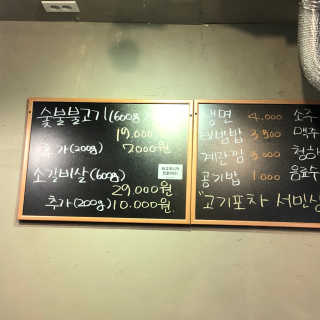 숯불불고기(600g)
19.000원
추가(200g) 7000원
소갈비살(600g)
29.000원
추가(200g)10.000원.
냉면 4.000 소주
3.500 맥주
계란찜 3.000 청하
공기밥 1000 음료수
"고기포차 서민상